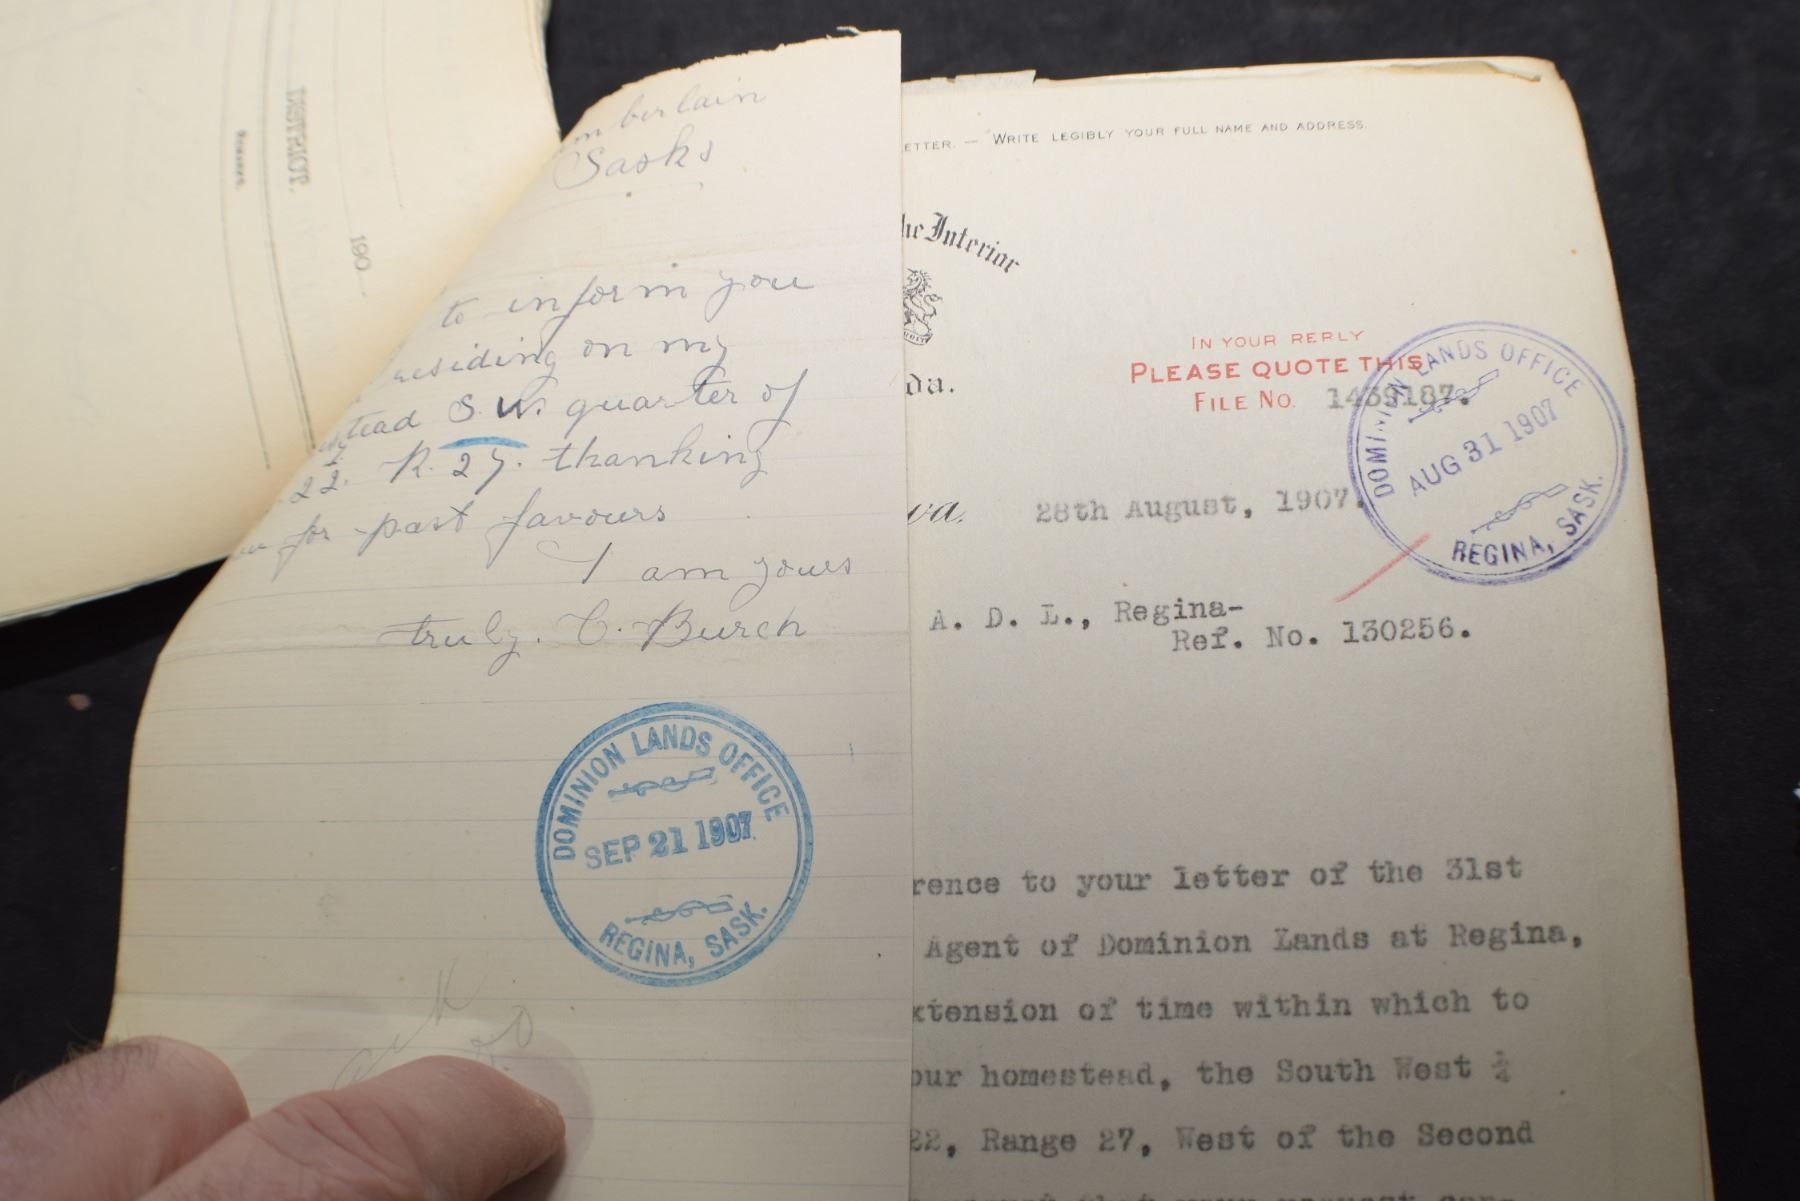 DISTRICT.
190
mberlain
Sasks
to inform you
residing on my
tead S.W. quarter of
22. R. 27. thanking
for past favours
I am yours
truly. C. Burch
DOMINION LANDS OFFICE
SEP 21 1907
REGINA, SASK.
ETTER. — WRITE LEGIBLY YOUR FULL NAME AND ADDRESS.
he Interior
IN YOUR REPLY
PLEASE QUOTE THIS
FILE NO. 1439187.
da.
DOMINION LANDS OFFICE
AUG 31 1907
REGINA, SASK.
va. 28th August, 1907.
A. D. L., Regina-
Ref. No. 130256.
rence to your letter of the 31st
Agent of Dominion Lands at Regina,
xtension of time within which to
our homestead, the South West ¼
22, Range 27, West of the Second